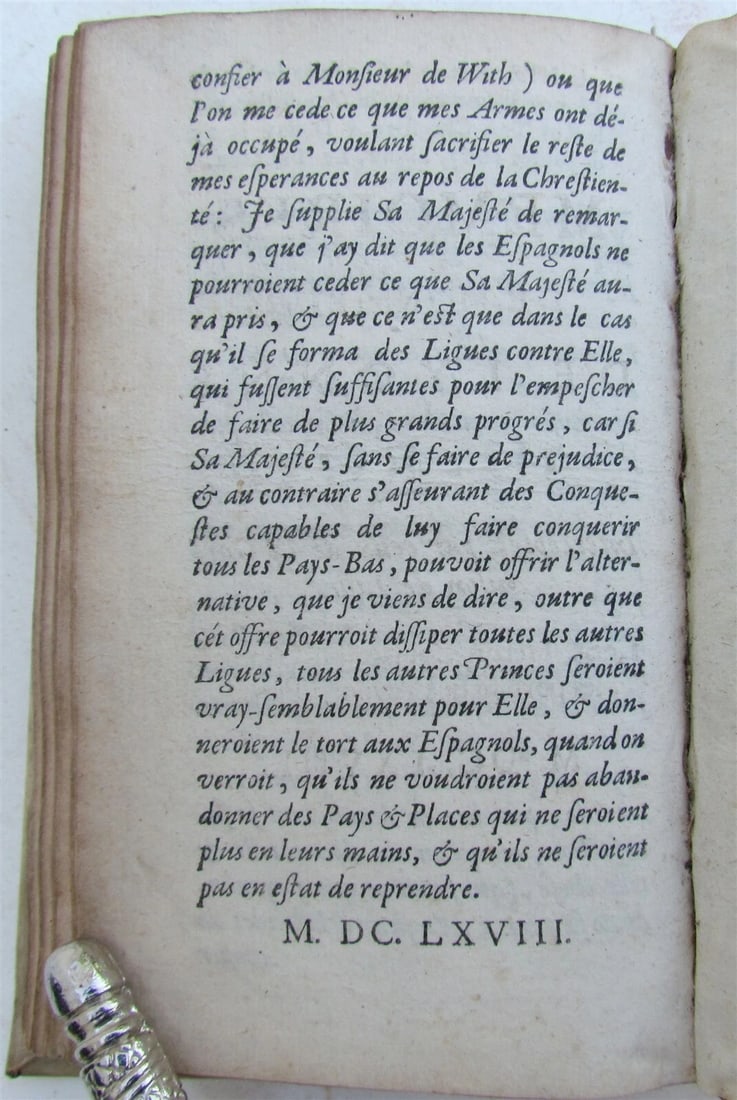 confier à Monſieur de With ) ou que
l'on me cede ce que mes Armes ont dé-
jà occupé, voulant ſacrifier le reſte de
mes eſperances au repos de la Chreſtien-
té : Je ſupplie Sa Majeſté de remar-
quer, que j'ay dit que les Eſpagnols ne
pourroient ceder ce que Sa Majeſté au-
ra pris, & que ce n'eſt que dans le cas
qu'il ſe forma des Ligues contre Elle,
qui fuſſent ſuffiſantes pour l'empeſcher
de faire de plus grands progrés, car ſi
Sa Majeſté, ſans ſe faire de prejudice,
& au contraire s'aſſeurant des Conque-
ſtes capables de luy faire conquerir
tous les Pays-Bas, pouvoit offrir l'alter-
native, que je viens de dire, outre que
cét offre pourroit diſſiper toutes les autres
Ligues, tous les autres Princes ſeroient
vray-ſemblablement pour Elle, & don-
neroient le tort aux Eſpagnols, quand on
verroit, qu'ils ne voudroient pas aban-
donner des Pays & Places qui ne ſeroient
plus en leurs mains, & qu'ils ne ſeroient
pas en eſtat de reprendre.
M. DC. LXVIII.